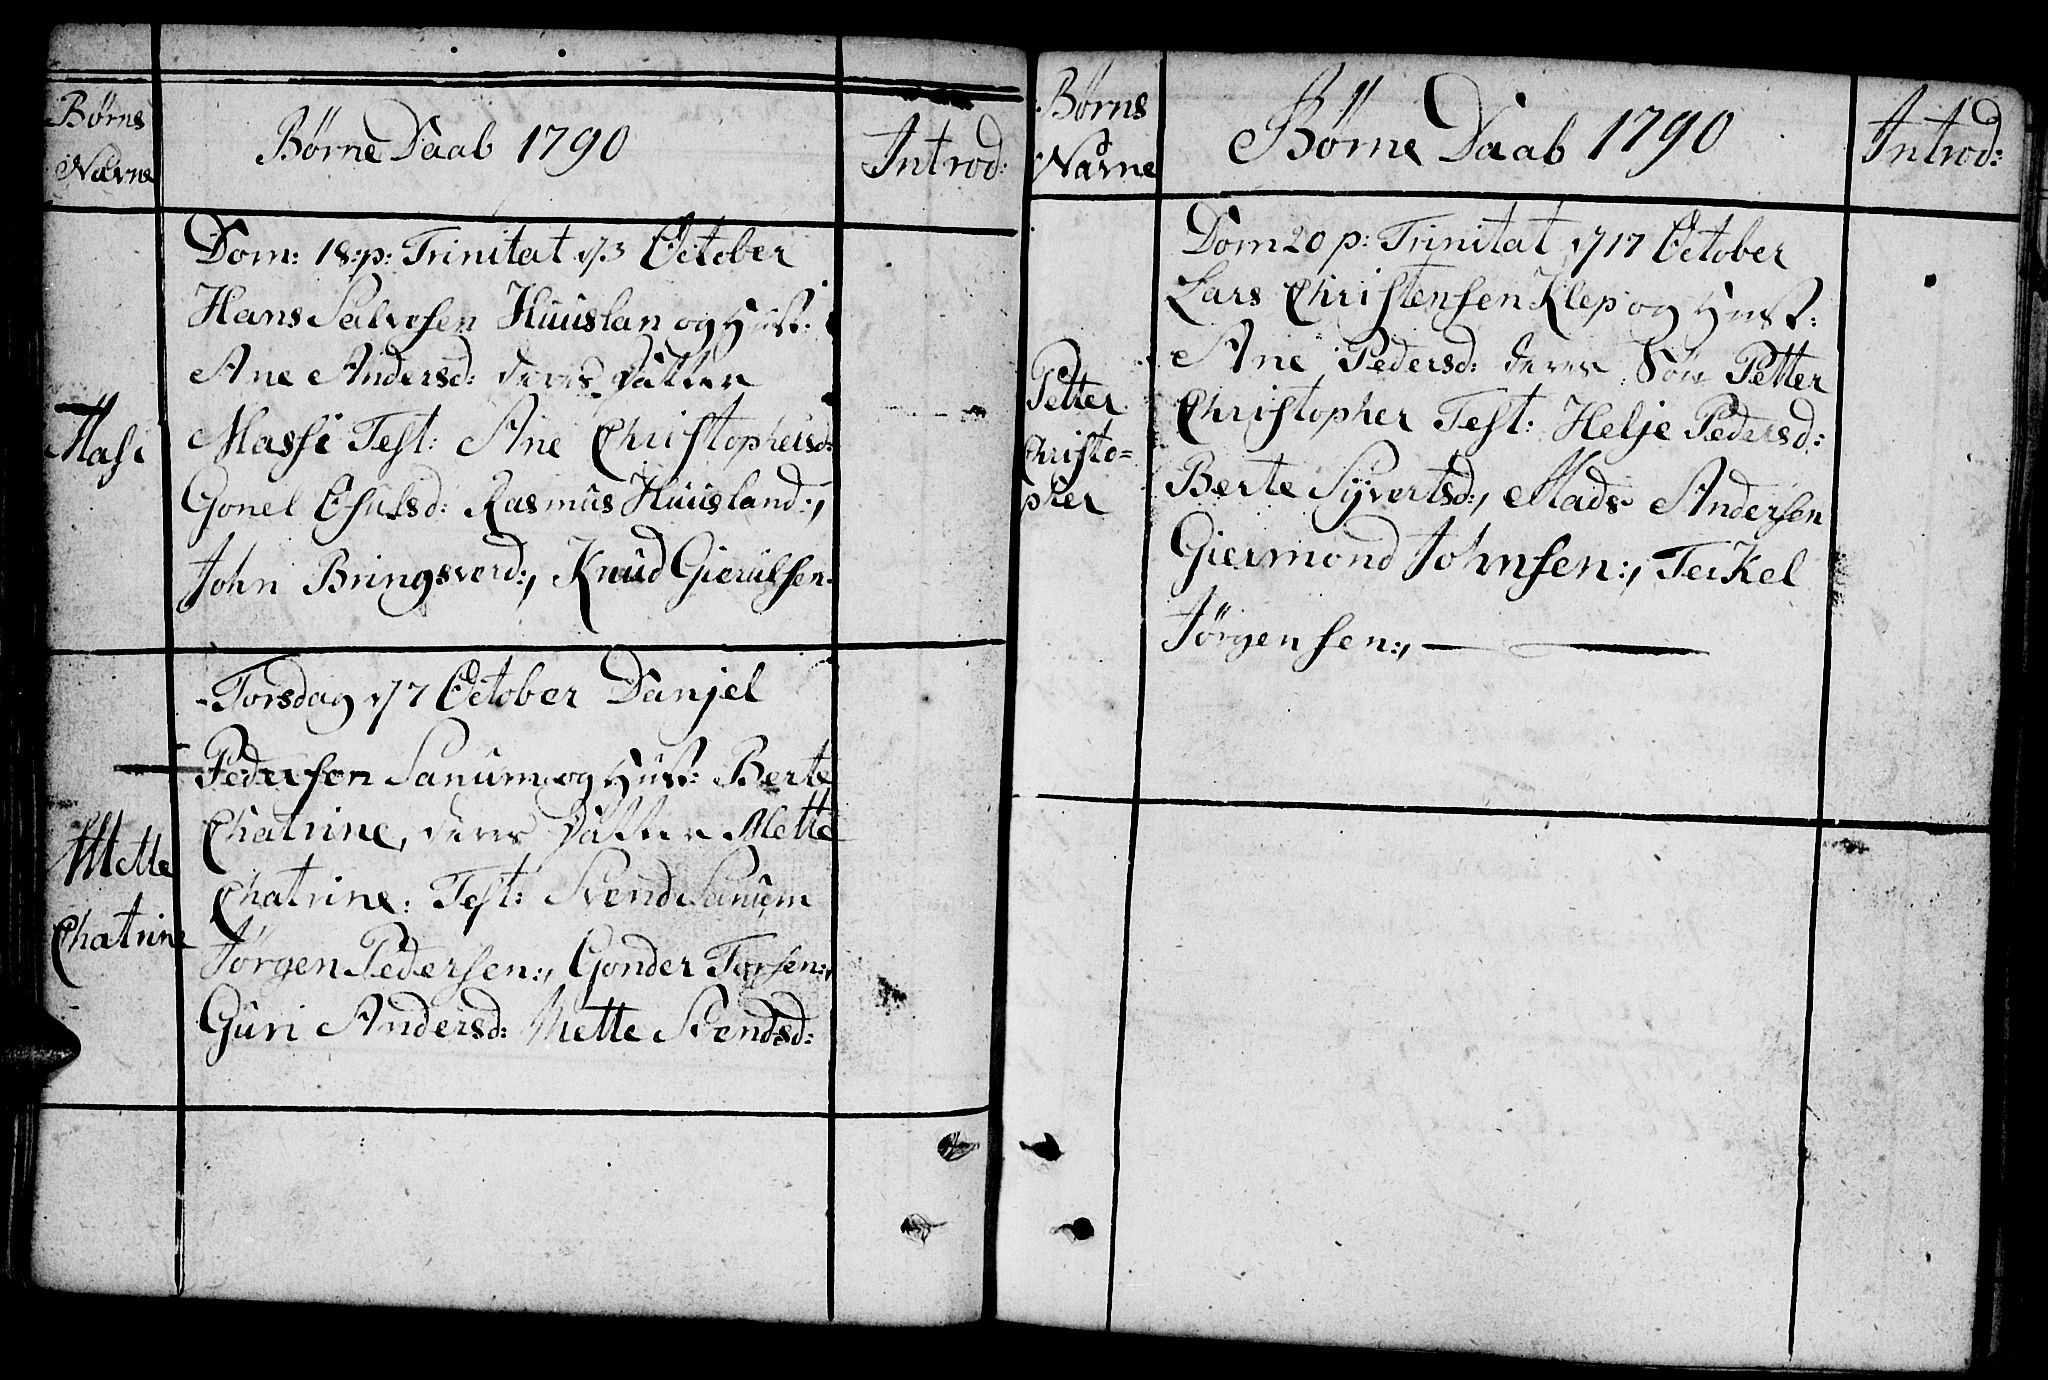 Børns
Navne
Børne Daab 1790
Introd:
Masi
Dom: 18: p: Trinitat d/3 October
Hans Salvesen Huuslan og Hust:
Ane Andersd: deres Datter
Massi Test: Ane Christophersd:
Gonel Rasmus Huusland:,
John Bringsverd:, Knud Gierulsen
Mette
Chatrine
Torsdag d/7 October Danjel
Pedersen Sanum og Hust: Berte
Chatrine, deres Datter Mette
Chatrine: Test: Svend Sanum
Jørgen Pedersen:, Gonder Torsen:,
Guri Andersd: Mette Svendsd:
Børns
Navne
Børne Daab 1790
Introd:
Petter
Christo=
pher
Dom 20 p: Trinitat d/17 October
Lars Christensen Klep og Hust:
Ane Pedersd: deres Søn Petter
Christopher Test: Helje Pedersd:
Berte Syvertsd:, Mads Andersen
Giermond Johnsen:, Terkel
Jørgensen:,